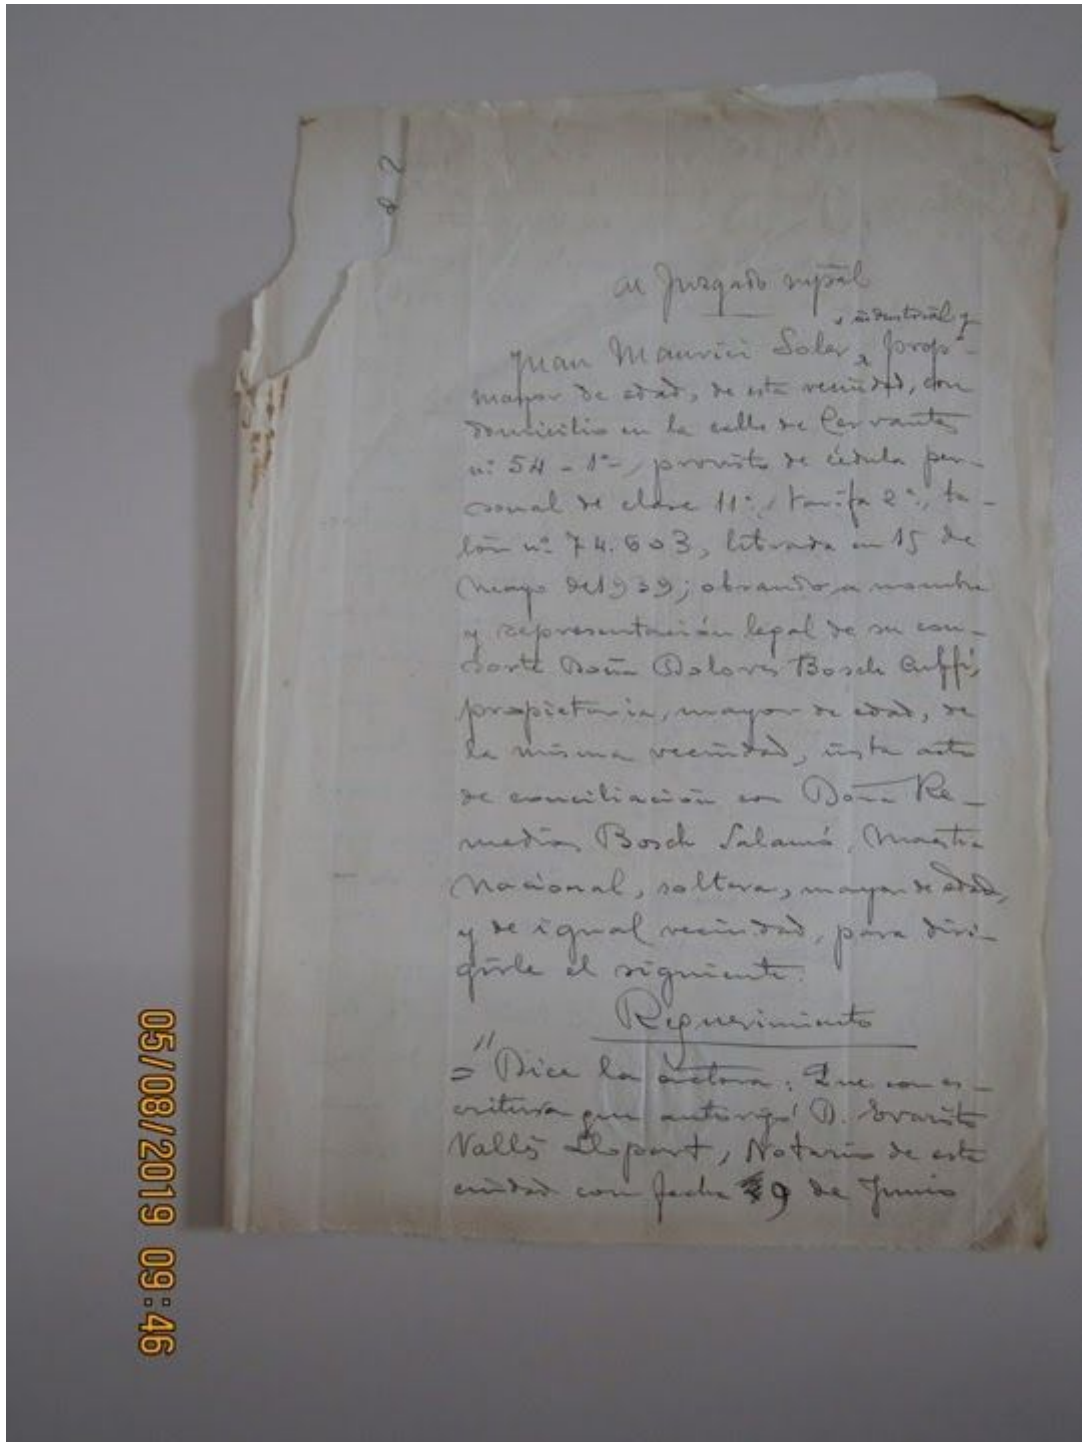 al Juzgado mpal
, industrial y
Juan Maurici Soler, prop-
mayor de edad, de esta vecindad, con
domicilio en la calle de Cervantes
nº 54 - 1º-, provisto de cédula per-
sonal de clase 11ª, tarifa 2ª, ta-
lón nº 74.603, librada en 15 de
Mayo de 1939; obrando a nombre
y representación legal de su con-
sorte Doña Dolores Bosch Cuffí,
propietaria, mayor de edad, de
la misma vecindad, insta acto
de conciliación con Doña Re-
medios Bosch Salamó, Maestra
Nacional, soltera, mayor de edad,
y de igual vecindad, para diri-
girle el siguiente.
Requerimiento
="Dice la actora: Que con es-
critura que autorizó D. Evaristo
Vallés Llopart, Notario de esta
ciudad con fecha 9 de Junio
05/08/2019 09:46